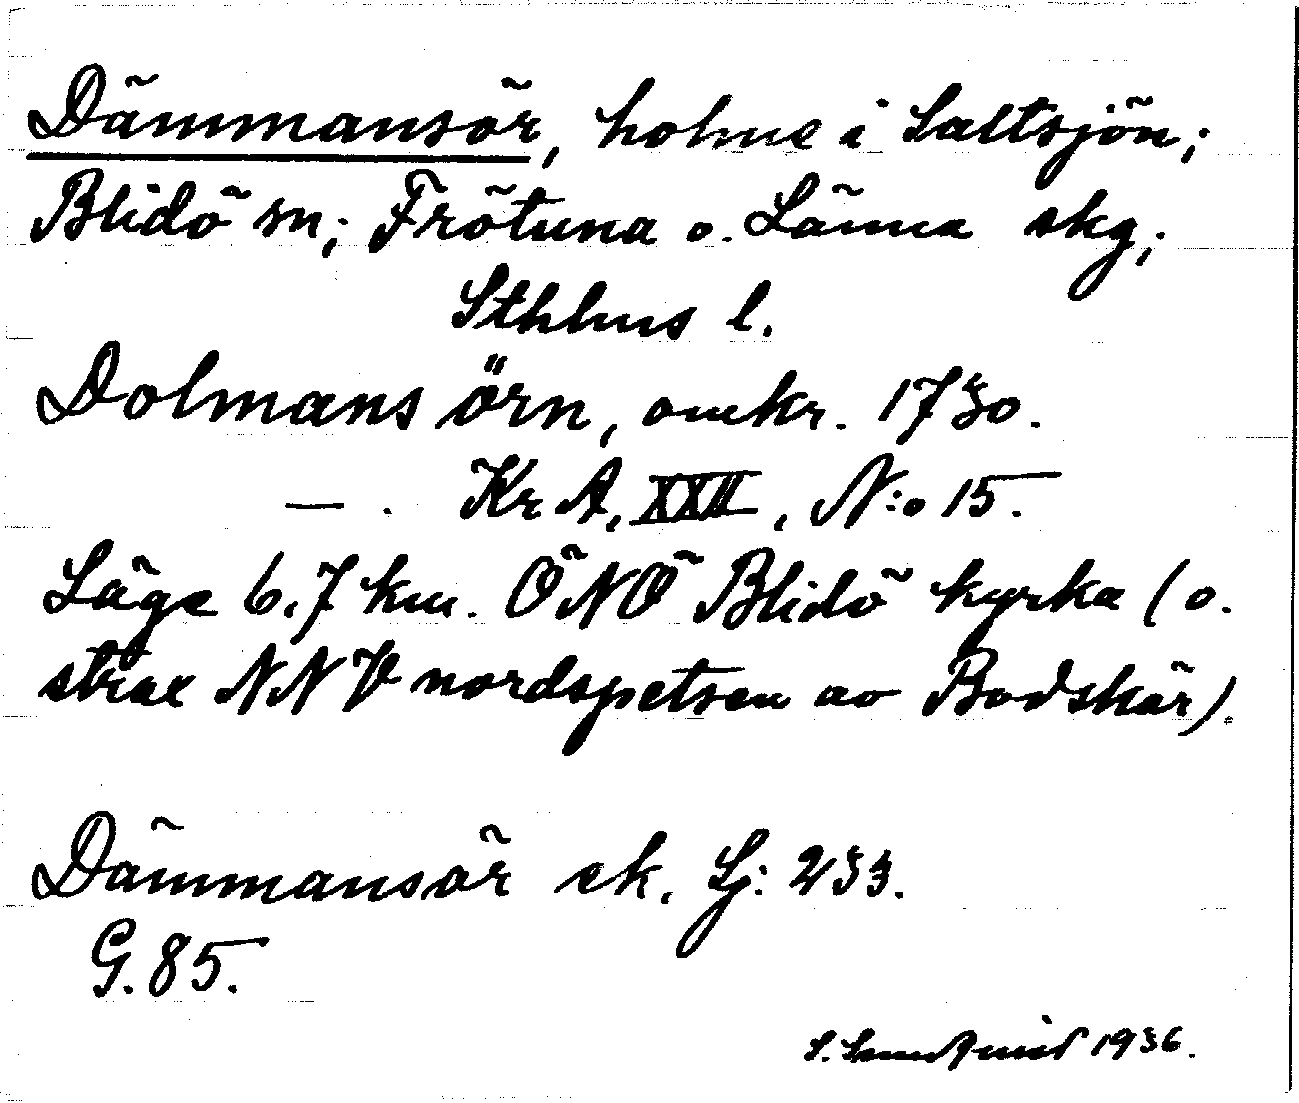 Dämmansör, holme i Saltsjön;
Blidö sn; Frötuna o. Länna skg;
Sthlms l.
Dolmans örn, omkr. 1730.
— . Kr A, XXII, N:o 15.
Läge 6.7 km. ÖNÖ Blidö kyrka (o.
strax NNV nordspetsen av Bodskär).
Dämmansör ek. Sj: 233.
G. 85.
S. Sundqvist 1936.